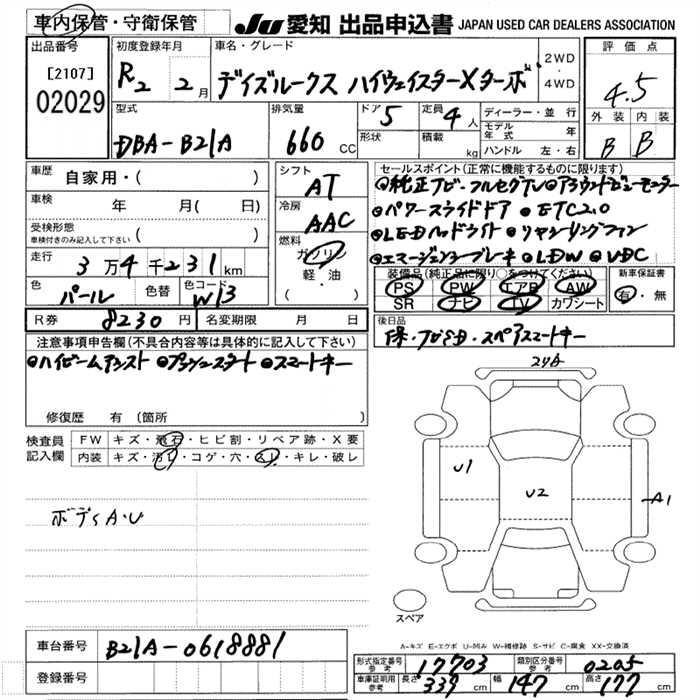 車内保管・守衛保管 JU 愛知 出品申込書 JAPAN USED CAR DEALERS ASSOCIATION
出品番号 [2107] 02029
初度登録年月 R2 2月
車名・グレード デイズルークス ハイウェイスターXターボ 2WD ・ 4WD
評価点 4.5
外装 B 内装 B
型式 DBA-B21A
排気量 660 CC
ドア 5 形状
定員 4人 積載 kg
ディーラー・並行
モデル年式 年
ハンドル 左・右
車歴 自家用・( )
車検 年 月( 日)
受検形態 車検付きのみ記入して下さい ( )
走行 3万4千231km
色 パール 色替 色コード W13
シフト AT
冷房 AAC
燃料 ガソリン 軽・油 ( )
セールスポイント(正常に機能するものに限ります)
●純正ナビ・フルセグTV ●アラウンドビューモニター
●パワースライドドア ●ETC2.0
●LEDヘッドライト ●リヤシーリングファン
●エマージェンシーブレーキ ●LDW ●VDC
装備品(純正品に限り○をつけてください)
PS PW エアB AW
SR ナビ TV カワシート
新車保証書 有・無
R券 8230円 名変期限 月 日
後日品
保・ナビSD・スペアスマートキー
注意事項申告欄(不具合内容等は具体的に記入して下さい)
●ハイビームアシスト ●プッシュスタート ●スマートキー
修復歴 有 (箇所 )
検査員記入欄
FW キズ・飛石・ヒビ割・リペア跡・X要
内装 キズ・汚レ・コゲ・穴・スレ・キレ・破レ
ボディA・U
U1
U2
A1
スペア
A-キズ E-エクボ U-凹み W-補修跡 S-サビ C-腐食 XX-交換済
車台番号 B21A-0618881
登録番号
形式指定番号 参考 17703 類別区分番号 参考 0205
車庫証明用 参考 長さ 339cm 幅 147cm 高さ 177cm